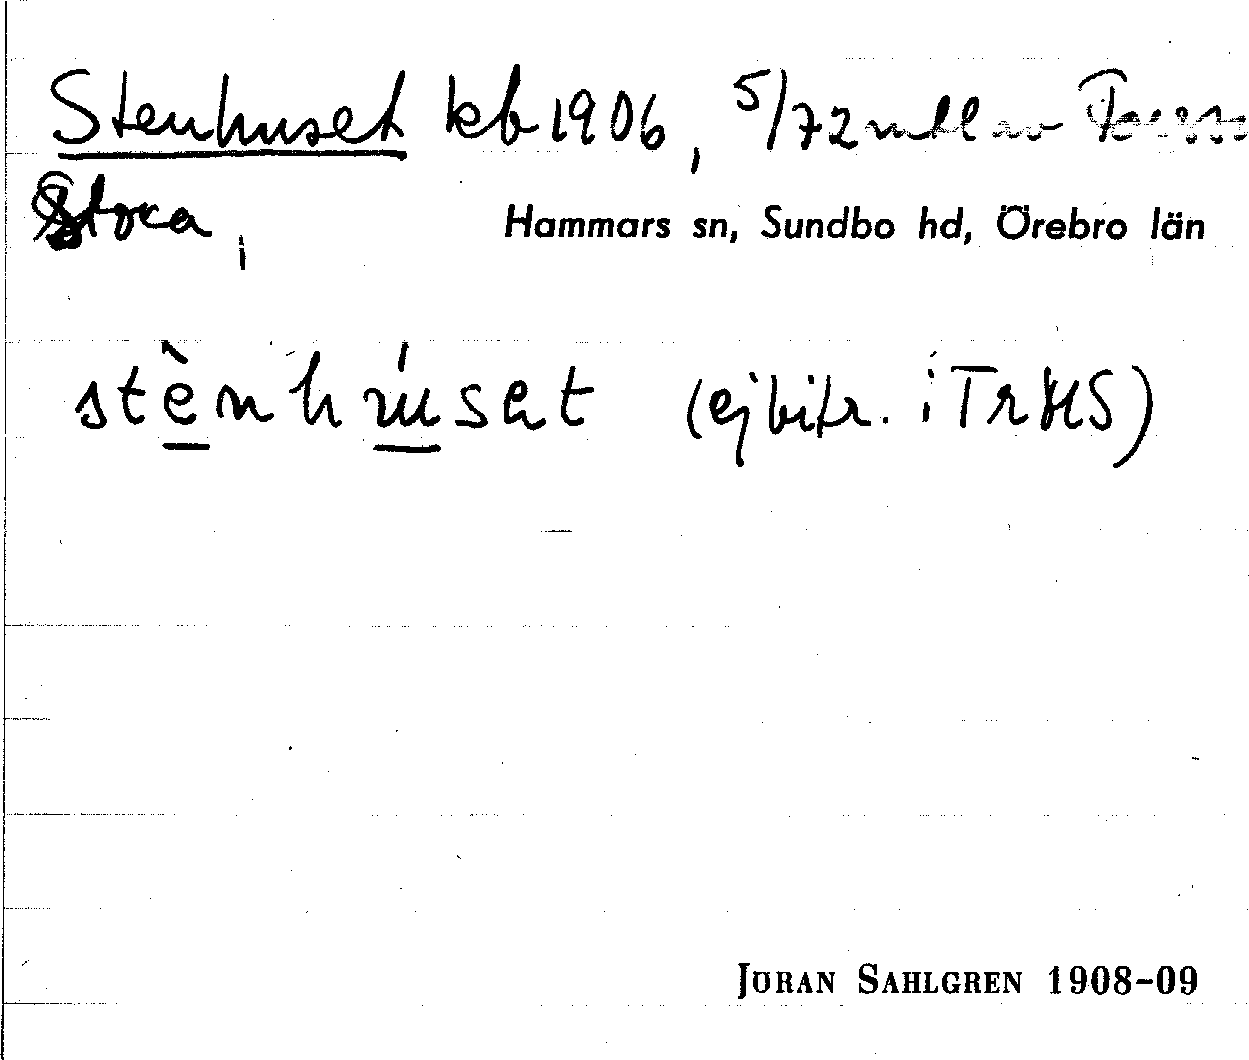 Stenhuset kb 1906, 5/72 mtl av
Stora,
Hammars sn, Sundbo hd, Örebro län
stènhúsat (ej bitr. i TrHS)
JÖRAN SAHLGREN 1908-09